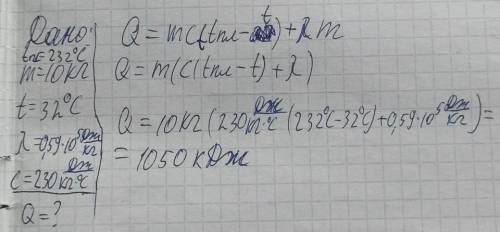 Дано:
tпл=232°C
m=10кг
t=32°C
λ=0,59·10⁵ Дж/кг
c=230 Дж/кг·°C
Q=?
Q=mc(tпл-t)+λm
Q=m(c(tпл-t)+λ)
Q=10кг(230 Дж/кг·°C (232°C-32°C)+0,59·10⁵ Дж/кг)=
=1050кДж